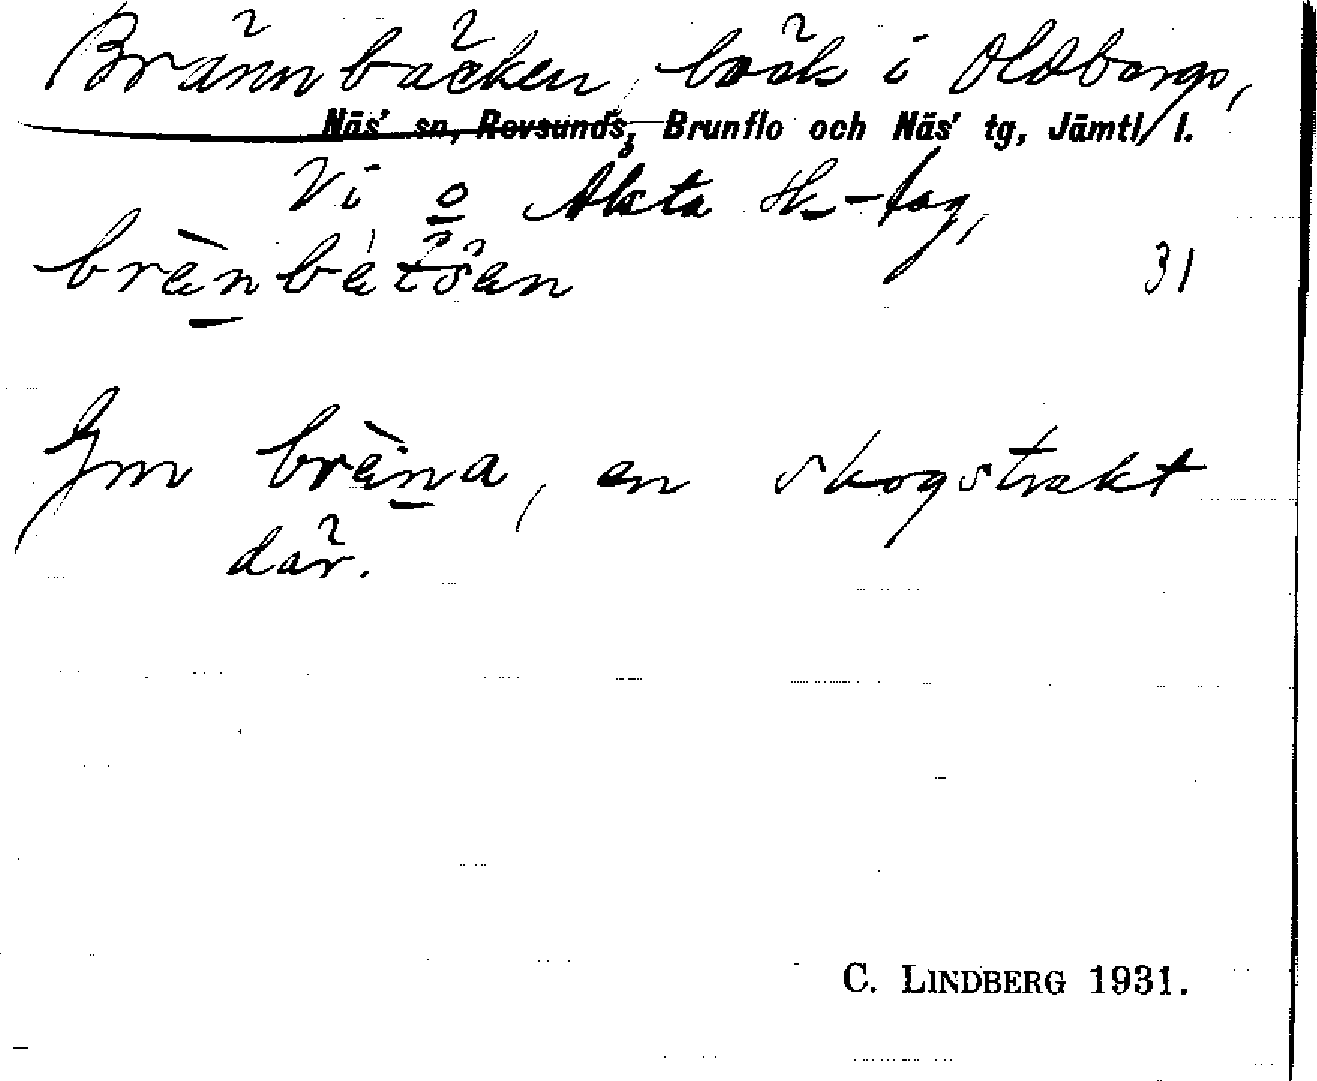 Brännbäcken, bäck i Oldbergs,
Näs' sn, Revsunds, Brunflo och Näs' tg, Jämtl l.
Vi o Akta sk-lag,
brènbètšen 31
Jm brèna, en skogstrakt
där.
C. LINDBERG 1931.